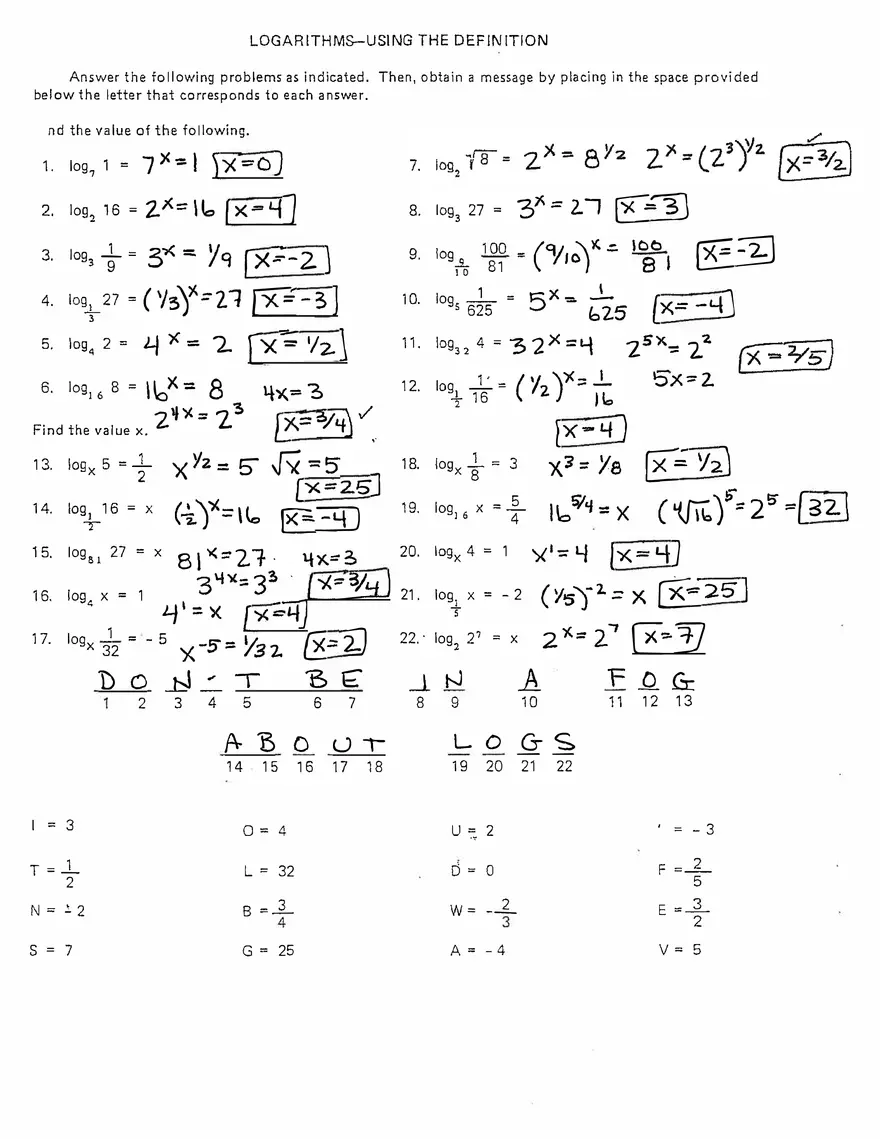 LOGARITHMS—USING THE DEFINITION
Answer the following problems as indicated. Then, obtain a message by placing in the space provided
below the letter that corresponds to each answer.
nd the value of the following.
1. log₇ 1 = 7^x = 1 x=0
2. log₂ 16 = 2^x = 16 x=4
3. log₃ 1/9 = 3^x = 1/9 x=-2
4. log_1/3 27 = (1/3)^x = 27 x=-3
5. log₄ 2 = 4^x = 2 x=1/2
6. log₁₆ 8 = 16^x = 8 4x=3
2^4x = 2^3 x=3/4 ✓
7. log₂ √8 = 2^x = 8^1/2 2^x = (2^3)^1/2 x=3/2 ✓
8. log₃ 27 = 3^x = 27 x=3
9. log_9/10 100/81 = (9/10)^x = 100/81 x=-2
10. log₅ 1/625 = 5^x = 1/625 x=-4
11. log₃₂ 4 = 32^x = 4 2^5x = 2^2 x=2/5
5x=2
12. log_1/2 1/16 = (1/2)^x = 1/16
x=4
Find the value x.
13. logₓ 5 = 1/2 x^1/2 = 5 √x = 5
x=25
14. log_1/2 16 = x (1/2)^x = 16 x=-4
15. log₈₁ 27 = x 81^x = 27 4x=3
3^4x = 3^3 x=3/4
16. log₄ x = 1 4^1 = x x=4
17. logₓ 1/32 = -5 x^-5 = 1/32 x=2
18. logₓ 1/8 = 3 x^3 = 1/8 x=1/2
19. log₁₆ x = 5/4 16^5/4 = x (⁴√16)^5 = 2^5 = 32
20. logₓ 4 = 1 x^1 = 4 x=4
21. log_1/5 x = -2 (1/5)^-2 = x x=25
22. log₂ 2⁷ = x 2^x = 2^7 x=7
D O N ' T B E I N A F O G
1 2 3 4 5 6 7 8 9 10 11 12 13
A B O U T L O G S
14 15 16 17 18 19 20 21 22
I = 3 O = 4 U = 2 ' = -3
T = 1/2 L = 32 D = 0 F = 2/5
N = -2 B = 3/4 W = -2/3 E = 3/2
S = 7 G = 25 A = -4 V = 5